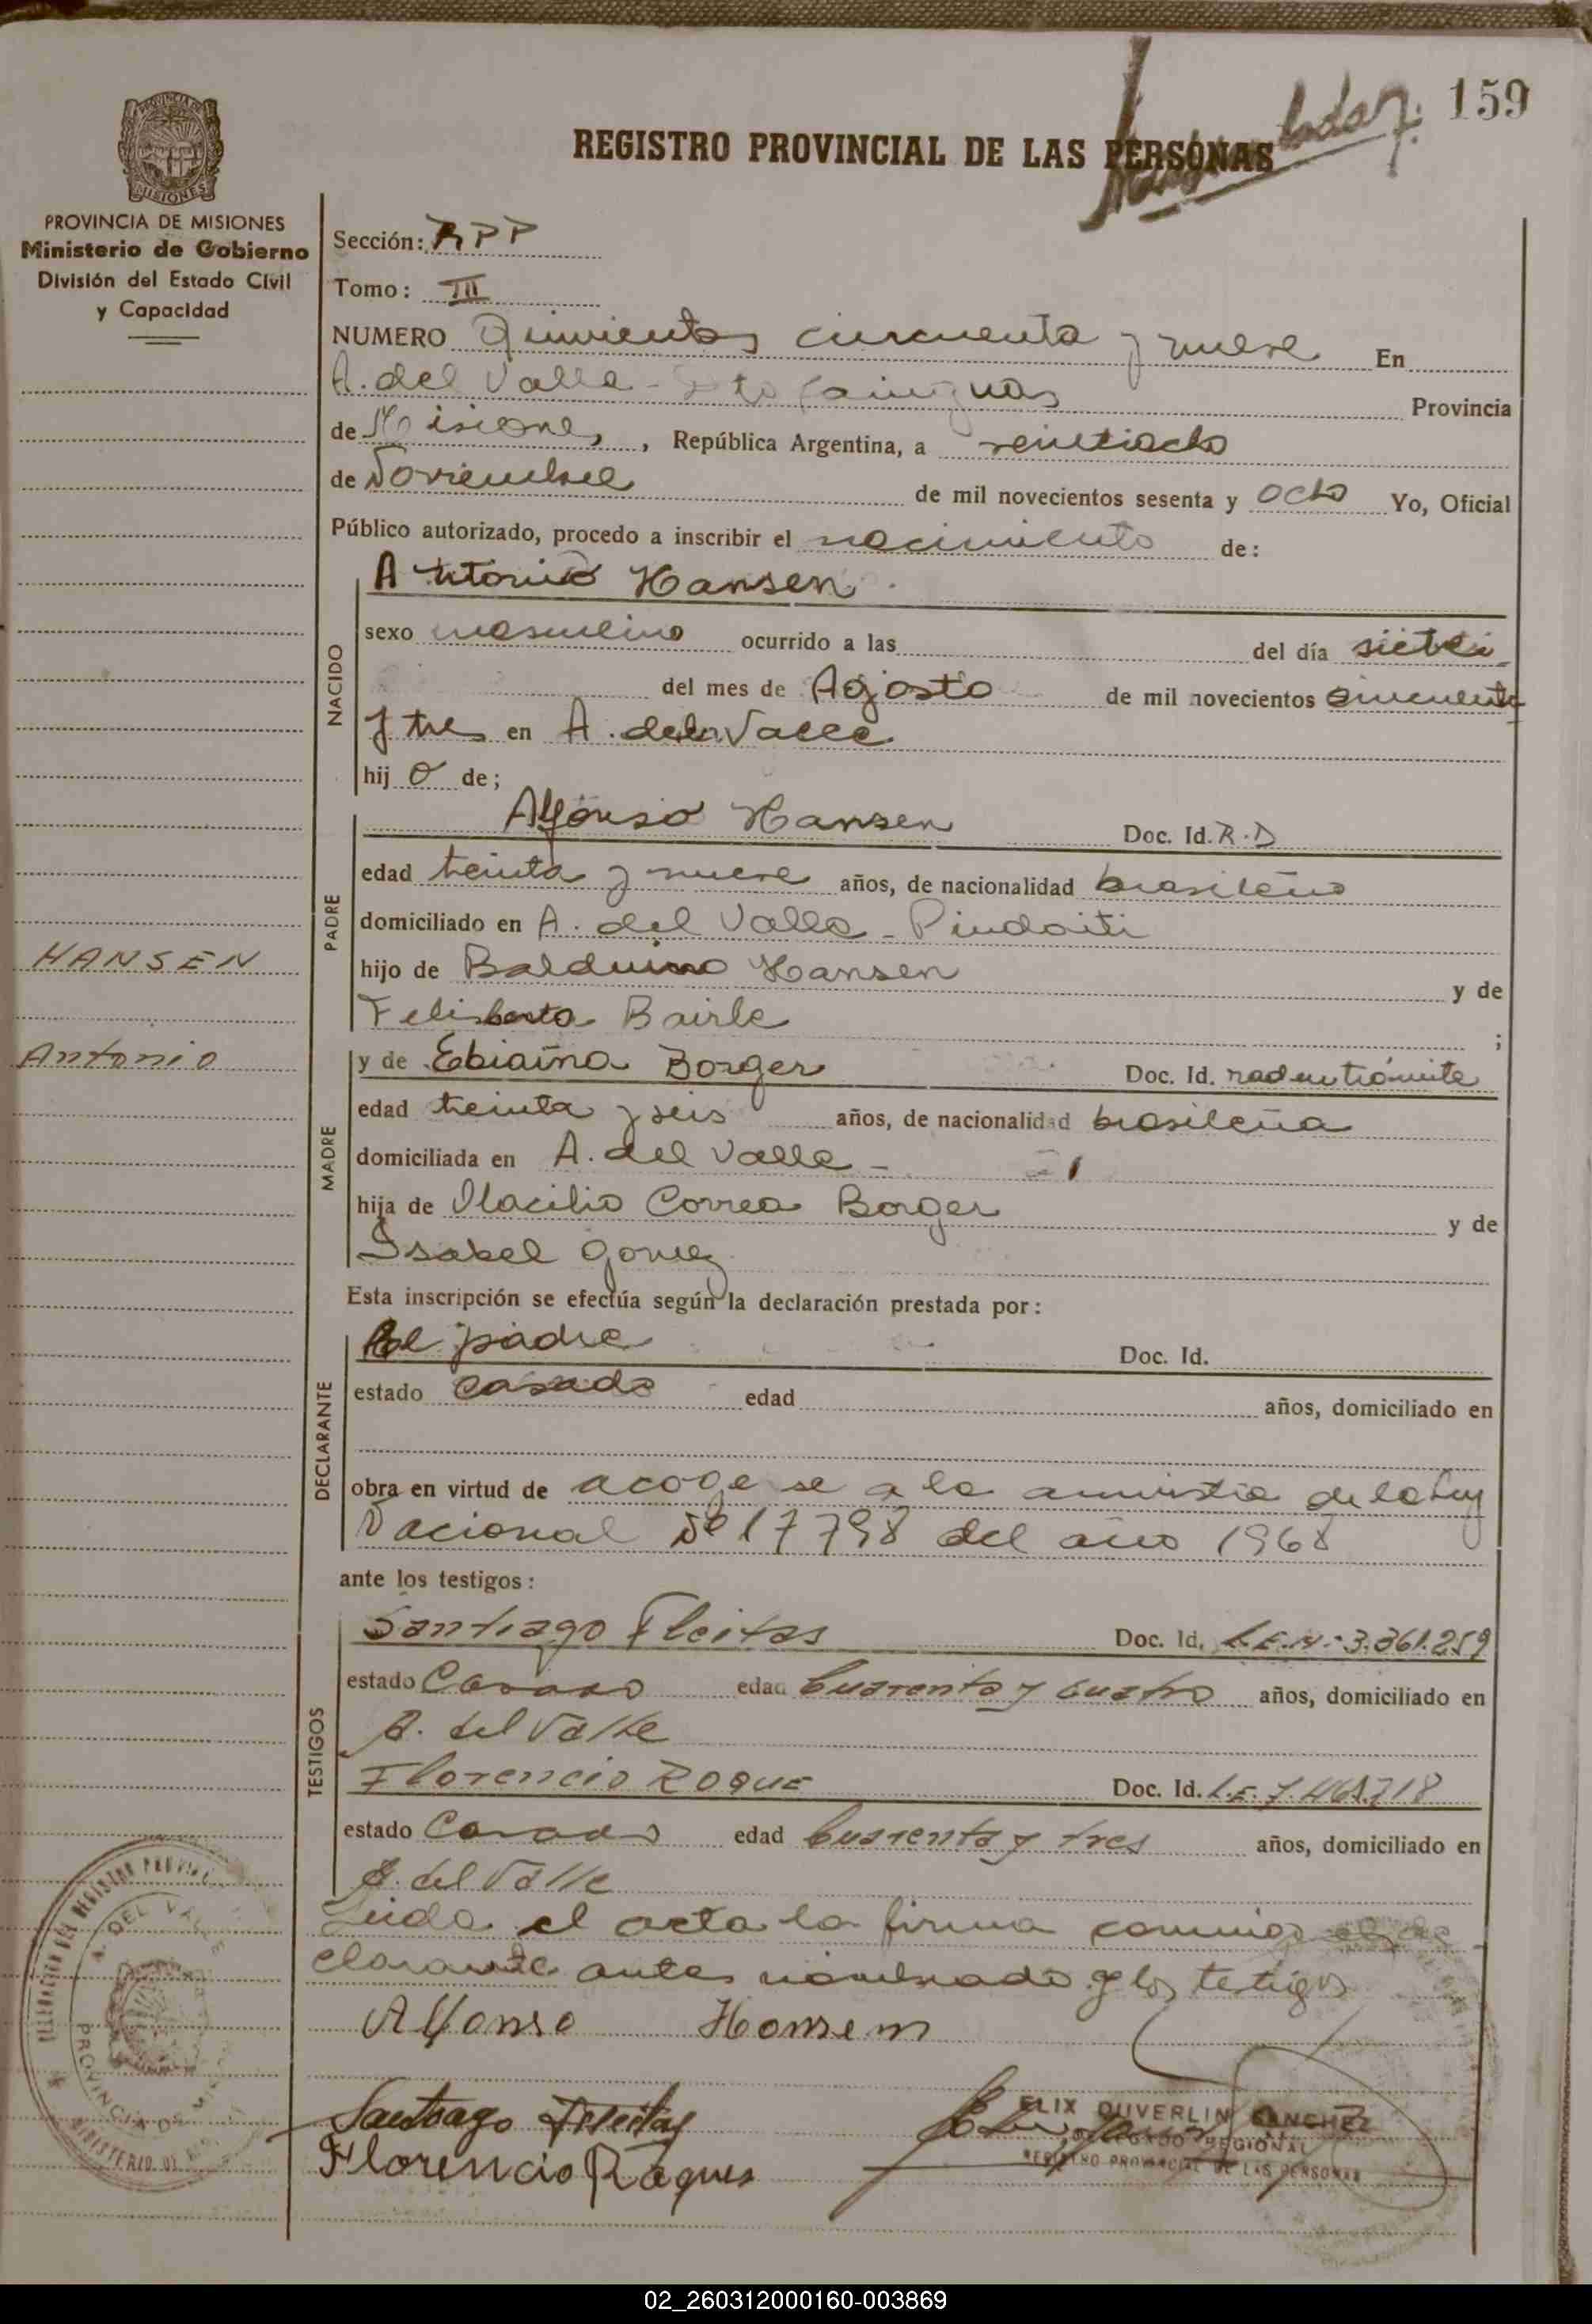 159
REGISTRO PROVINCIAL DE LAS PERSONAS
PROVINCIA DE MISIONES
Ministerio de Gobierno
División del Estado Civil
y Capacidad
Sección: RPP
Tomo: III
NUMERO Quinientos cincuenta y nueve En
A. del Valle - Dto Cainguas Provincia
de Misiones, República Argentina, a veintiocho
de Noviembre de mil novecientos sesenta y ocho Yo, Oficial
Público autorizado, procedo a inscribir el nacimiento de:
Antonio Hansen
NACIDO
sexo masculino ocurrido a las del día siete
del mes de Agosto de mil novecientos cincuenta
y tres en A. del Valle
hij o de;
PADRE
Alfonso Hansen Doc. Id. R.D
edad treinta y nueve años, de nacionalidad brasileño
domiciliado en A. del Valle - Pindaiti
hijo de Balduino Hansen y de
Felisberta Bairle ;
HANSEN
Antonio
MADRE
y de Ebiaina Borger Doc. Id.
edad treinta y seis años, de nacionalidad brasileña
domiciliada en A. del Valle -
hija de Olacilio Correa Borger y de
Isabel Gomez
Esta inscripción se efectúa según la declaración prestada por:
DECLARANTE
el padre Doc. Id.
estado casado edad años, domiciliado en
obra en virtud de acogerse a la amnistia de la Ley
Nacional Nº 17798 del año 1968
ante los testigos:
TESTIGOS
Santiago Fleitas Doc. Id. L.E.Nº 3.361.259
estado Casado edad Cuarenta y cuatro años, domiciliado en
A. del Valle
Florencio ROQUE Doc. Id. L.E. 7.461.718
estado Casado edad Cuarenta y tres años, domiciliado en
A. del Valle
Leida el acta la firma conmigo el de
clarante antes nombrado y los testigos
Alfonso Honsem
Santiago Fleitas
Florencio Roques
ELIX DUVERLIN SANCHEZ
DELEGADO REGIONAL
REGISTRO PROVINCIAL DE LAS PERSONAS
A. DEL VALLE
PROVINCIA DE MIS
02_260312000160-003869